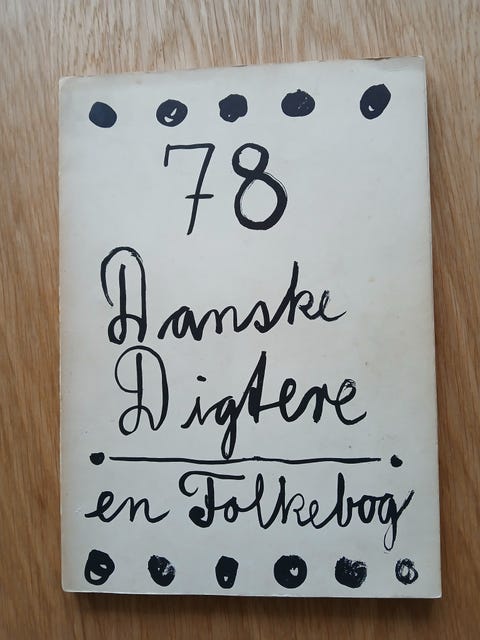 78
Danske
Digtere
en Folkebog